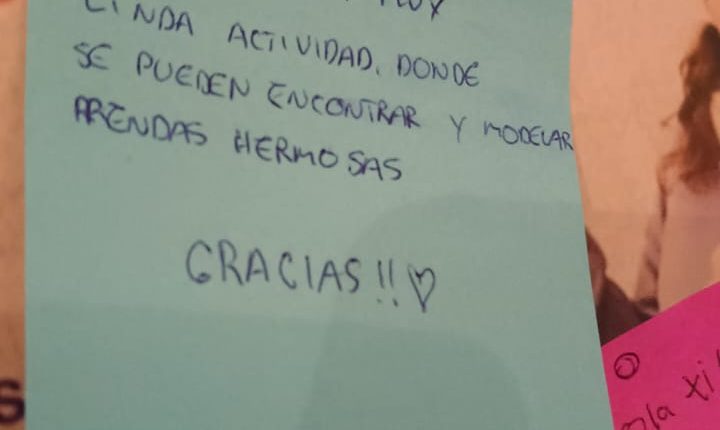 LINDA ACTIVIDAD. DONDE
SE PUEDEN ENCONTRAR Y MODELAR
PRENDAS HERMOSAS
GRACIAS!! ♡